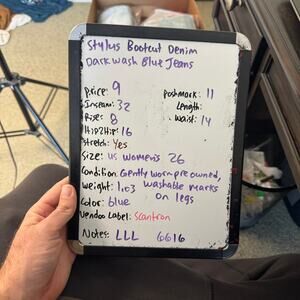 Stylus Bootcut Denim
Dark wash Blue Jeans
Price: 9
Poshmark: 11
Inseam: 32
Length:
Rise: 8
Waist: 14
Hip2Hip: 16
Stretch: Yes
Size: US women's 26
Condition: Gently worn pre owned,
washable marks
on legs
Weight: 1.03
Color: blue
Vendoo Label: Scantron
Notes: LLL 6616